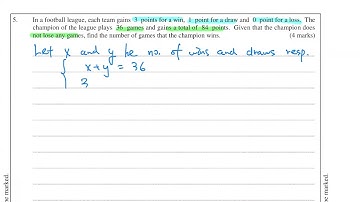 5. In a football league, each team gains 3 points for a win, 1 point for a draw and 0 point for a loss. The
champion of the league plays 36 games and gains a total of 84 points. Given that the champion does
not lose any games, find the number of games that the champion wins. (4 marks)
Let x and y be no. of wins and draws resp.
x + y = 36
3
be marked.
be marked.